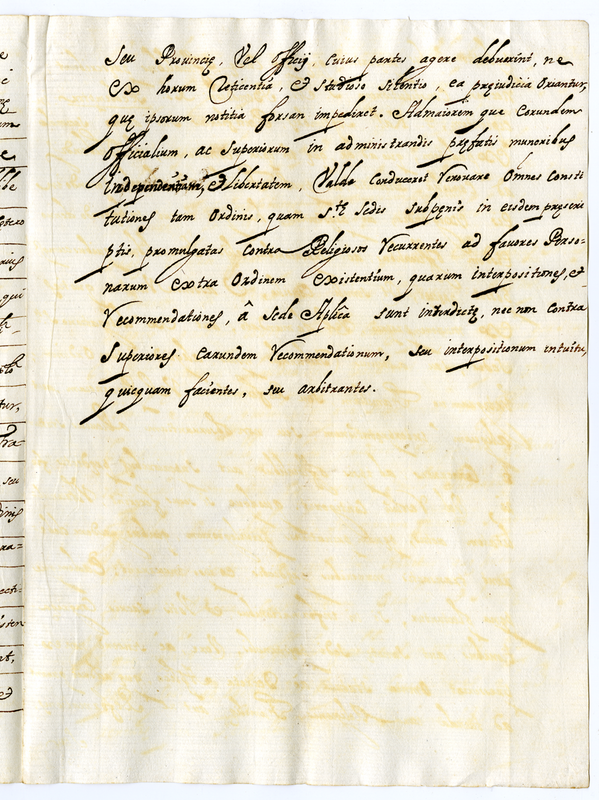 seu Provincię, vel officij, cuius partes agere debuerint, ne
ex horum reticentia, et studioso silentio, ea pręiudicia oriantur,
quę ipsorum notitia forsan impediret. Ad maiorem que eorundem
officialium, ac superiorum in administrandis pręfatis muneribus
independentiam, et libertatem, valde conduceret renovare omnes consti
tutiones tam ordinis, quam s.tę sedis sub pęnis in eisdem pręscri
ptis, promulgatas contra Religiosos recurrentes ad favores Perso=
narum extra ordinem existentium, quarum interpositiones, et
recommendationes, â sede Aplîca sunt interdictę, nec non contra
superiores earundem recommendationum, seu interpositionum intuitu,
quicquam facientes, seu arbitrantes.